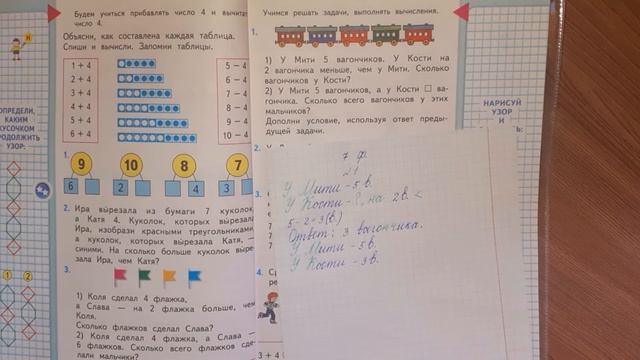 Будем учиться прибавлять число 4 и вычитать
число 4.
Объясни, как составлена каждая таблица.
Спиши и вычисли. Запомни таблицы.
1 + 4
2 + 4
3 + 4
4 + 4
5 + 4
6 + 4
5 − 4
6 − 4
7 − 4
8 − 4
9 − 4
10 − 4
ОПРЕДЕЛИ,
КАКИМ
КУСОЧКОМ
ПРОДОЛЖИТЬ
УЗОР:
1 2
1.
9 10 8 7
6 2 4 3
2. Ира вырезала из бумаги 7 куколок,
а Катя 4. Куколок, которых вырезала
Ира, изобрази красными треугольниками,
а куколок, которых вырезала Катя, —
синими. На сколько больше куколок выре-
зала Ира, чем Катя?
3.
1) Коля сделал 4 флажка,
а Слава — на 2 флажка больше, чем
Коля.
Сколько флажков сделал Слава?
2) Коля сделал 4 флажка, а Слава —
6 флажков. Сколько всего флажков сде-
лали мальчики?
Учимся решать задачи, выполнять вычисления.
1.
1) У Мити 5 вагончиков. У Кости на
2 вагончика меньше, чем у Мити. Сколько
вагончиков у Кости?
2) У Мити 5 вагончиков, а у Кости □ ва-
гончика. Сколько всего вагончиков у этих
мальчиков?
Дополни условие, используя ответ преды-
дущей задачи.
2.
3.
4. Ср
ре
3 + 4
НАРИСУЙ
УЗОР
7 ф.
У Мити - 5 в.
У Кости - ?, на 2 в. <
5 - 2 = 3 (в.)
Ответ: 3 вагончика.
У Мити - 5 в.
У Кости - 3 в.